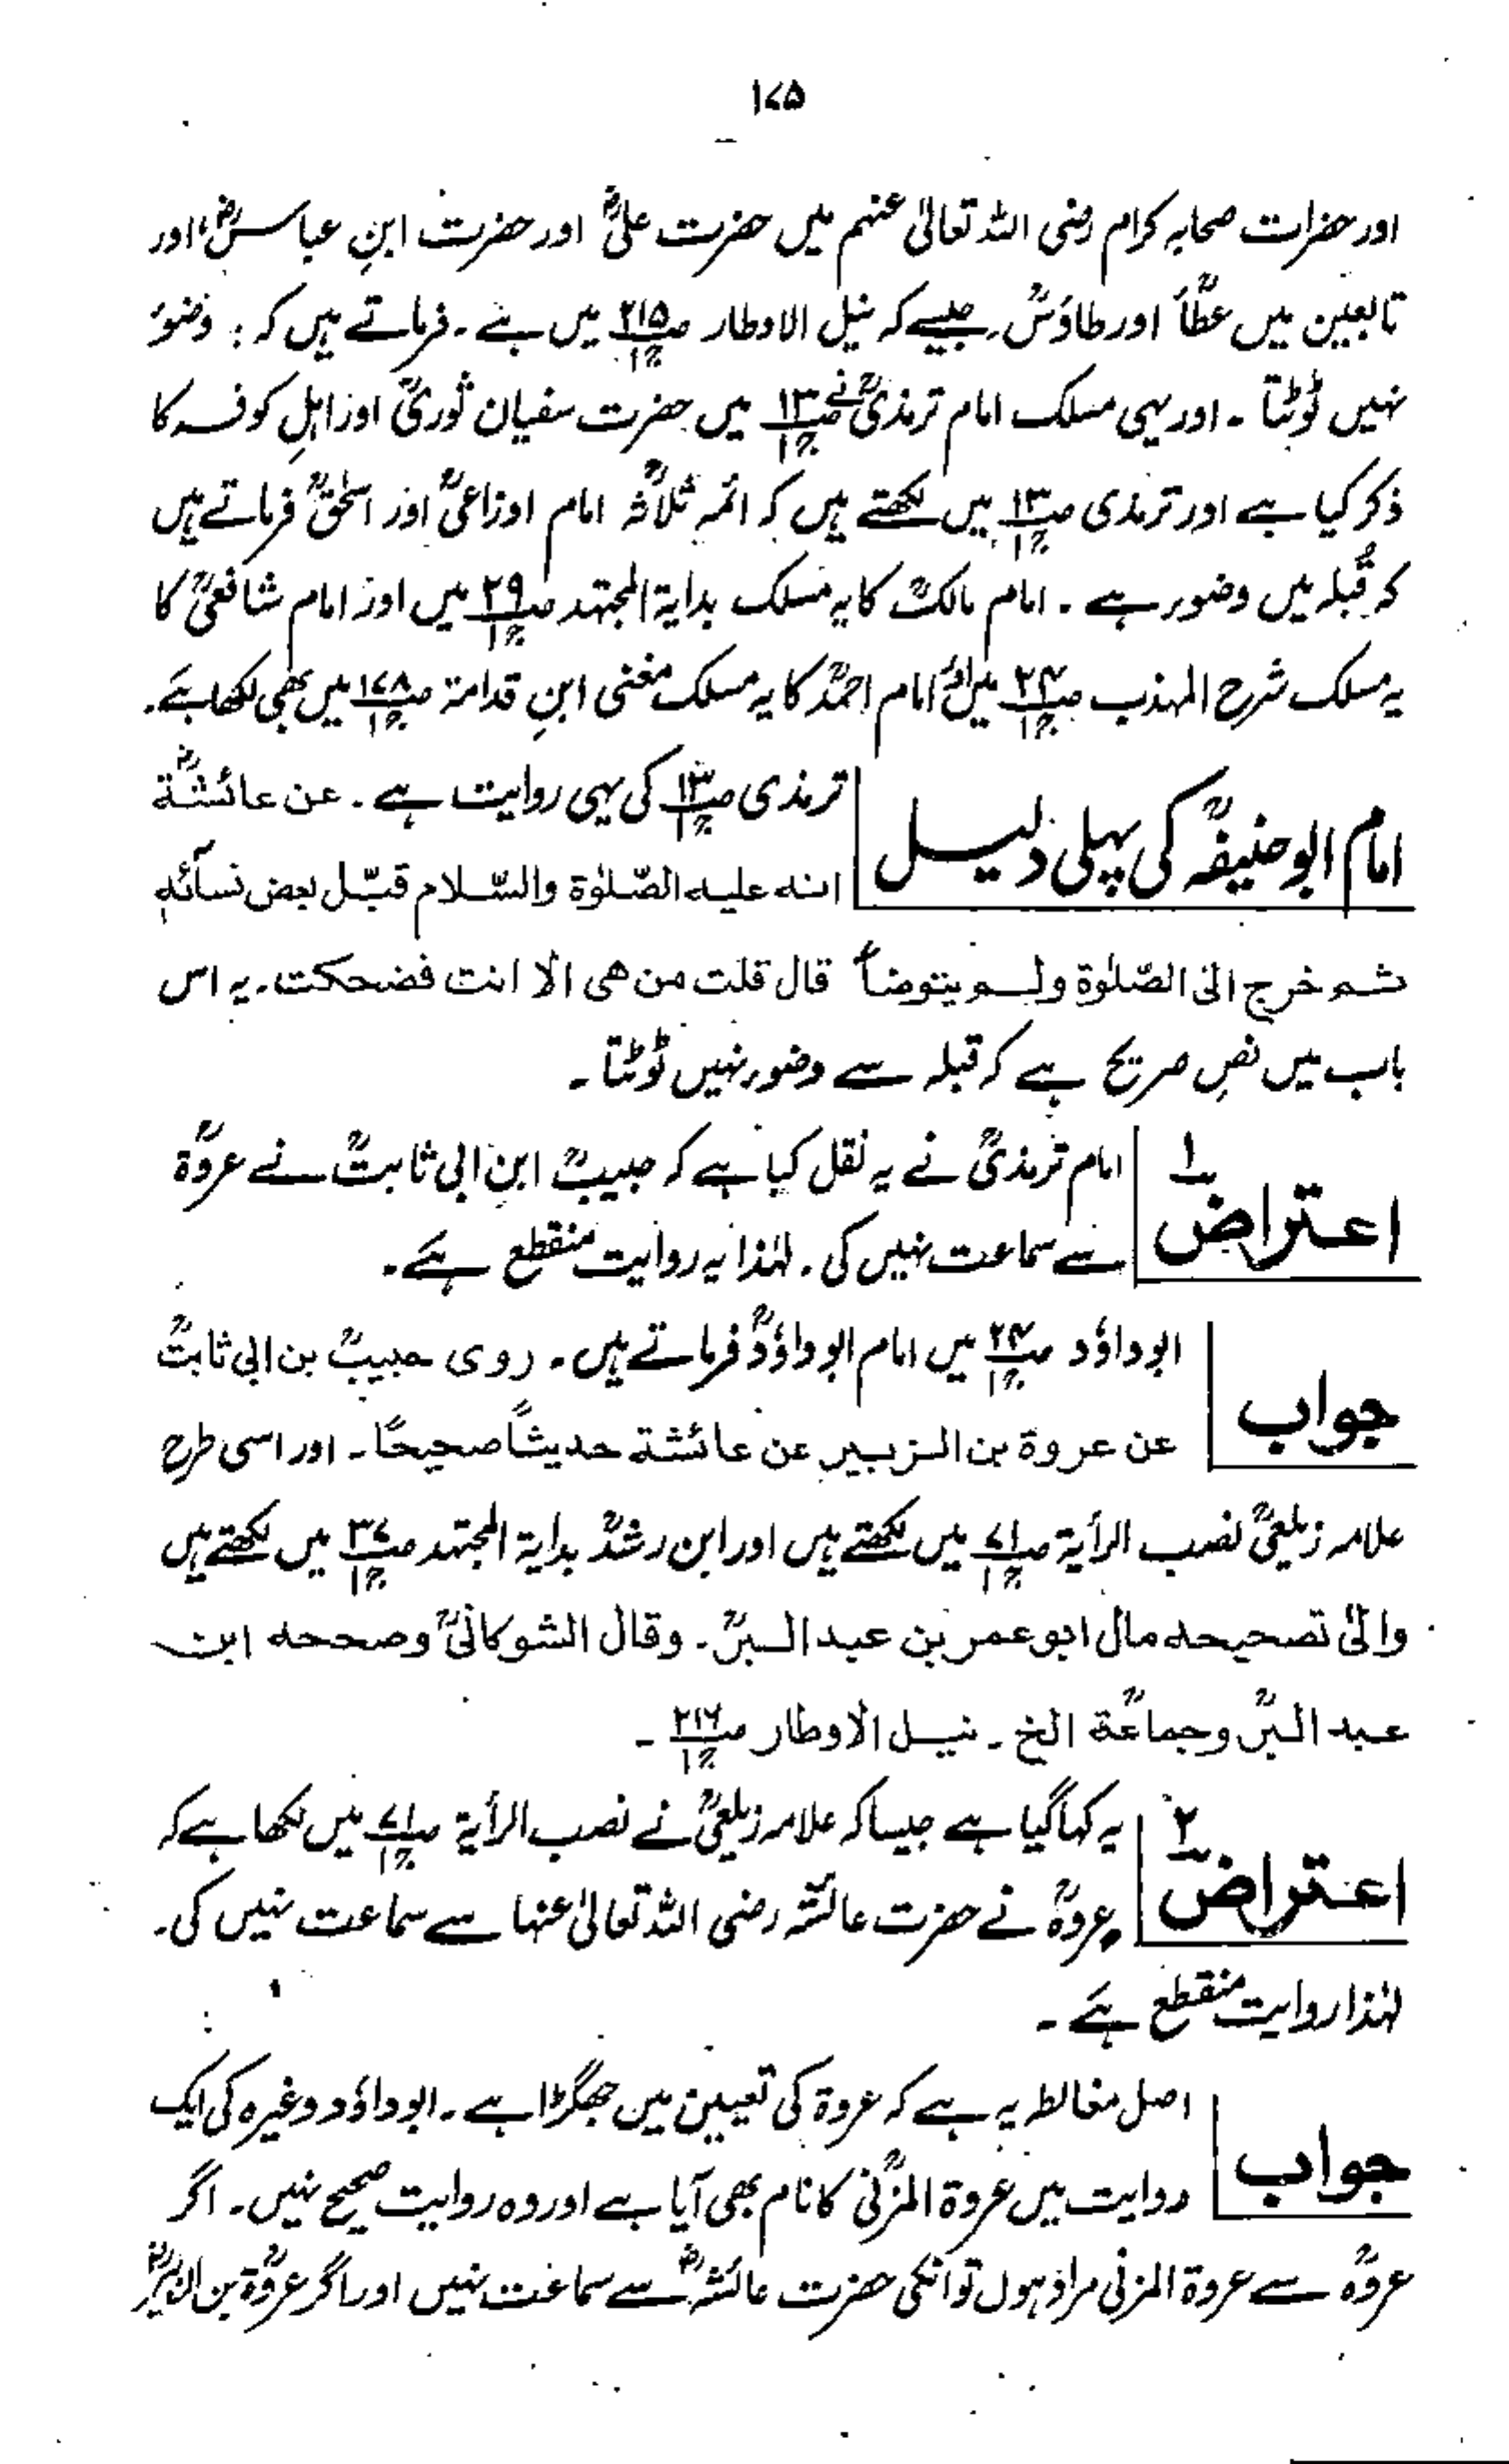 ۱۷۵
اور حضرات صحابہ کرام رضی اللہ تعالیٰ عنہم میں حضرت علیؓ اور حضرت ابنِ عباسؓ اور
تابعین میں عطاؒ اور طاؤسؒ جیسے کہ نیل الاوطار ص۲۱۵ ج۱ میں ہے۔ فرماتے ہیں کہ: وضوء
نہیں ٹوٹتا۔ اور یہی مسلک امام ترمذیؒ نے ص۱۳ ج۱ میں حضرت سفیان ثوریؒ اور اہلِ کوفہ کا
ذکر کیا ہے اور ترمذی ص۱۳ ج۱ میں لکھتے ہیں کہ ائمہ ثلاثہؒ امام اوزاعیؒ اور اسحٰقؒ فرماتے ہیں
کہ قُبلہ میں وضوء ہے۔ امام مالکؒ کا یہ مسلک بدایۃ المجتہد ص۲۹ ج۱ میں اور امام شافعیؒ کا
یہ مسلک شرح المہذب ص۲۴ ج۱ میں اور امام احمدؒ کا یہ مسلک مغنی ابنِ قدامۃ ص۱۷۸ ج۱ میں بھی لکھا ہے۔
امام ابو حنیفہؒ کی پہلی دلیل
ترمذی ص۱۳ ج۱ کی یہی روایت ہے۔ عن عائشۃؓ
انہ علیہ الصّلوٰۃ والسّلام قبّل بعض نسآئہٖ
ثم خرج الیٰ الصّلوٰۃ ولم یتوضأ قال قلت من ھی الّا انت فضحکت۔ یہ اس
باب میں نصِ صریح ہے کہ قبلہ سے وضوء نہیں ٹوٹتا۔
اعتراض ۱
امام ترمذیؒ نے یہ نقل کیا ہے کہ حبیبؒ ابن ابی ثابتؒ نے عروۃؒ
سے سماعت نہیں کی۔ لہٰذا یہ روایت منقطع ہے۔
جواب
ابو داؤد ص۲۴ ج۱ میں امام ابو داؤدؒ فرماتے ہیں۔ روی حبیبؒ بن ابی ثابتؒ
عن عروۃ بن الزبیر عن عائشۃ حدیثاً صحیحًا۔ اور اسی طرح
علامہ زیلعیؒ نصب الرأیۃ ص۷۱ ج۱ میں لکھتے ہیں اور ابن رشدؒ بدایۃ المجتہد ص۳۷ ج۱ میں لکھتے ہیں
والیٰ تصحیحہ مال ابو عمر بن عبد البرؒ۔ وقال الشوکانیؒ وصححہ ابن
عبد البرؒ وجماعۃؒ الخ۔ نیل الاوطار ص۲۱۶ ج۱۔
اعتراض ۲
یہ کہا گیا ہے جیسا کہ علامہ زیلعیؒ نے نصب الرأیۃ ص۷۱ ج۱ میں لکھا ہے کہ
عروہؒ نے حضرت عائشہ رضی اللہ تعالیٰ عنہا سے سماعت نہیں کی۔
لہٰذا روایت منقطع ہے۔
جواب
اصل مغالطہ یہ ہے کہ عروۃ کی تعیین میں جھگڑا ہے۔ ابو داؤد وغیرہ کی ایک
روایت میں عروۃ المزنیؒ کا نام بھی آیا ہے اور وہ روایت صحیح نہیں۔ اگر
عروہؒ سے عروۃ المزنی مراد ہوں تو انکی حضرت عائشہؓ سے سماعت نہیں اور اگر عروۃؒ بن الزبیرؓ